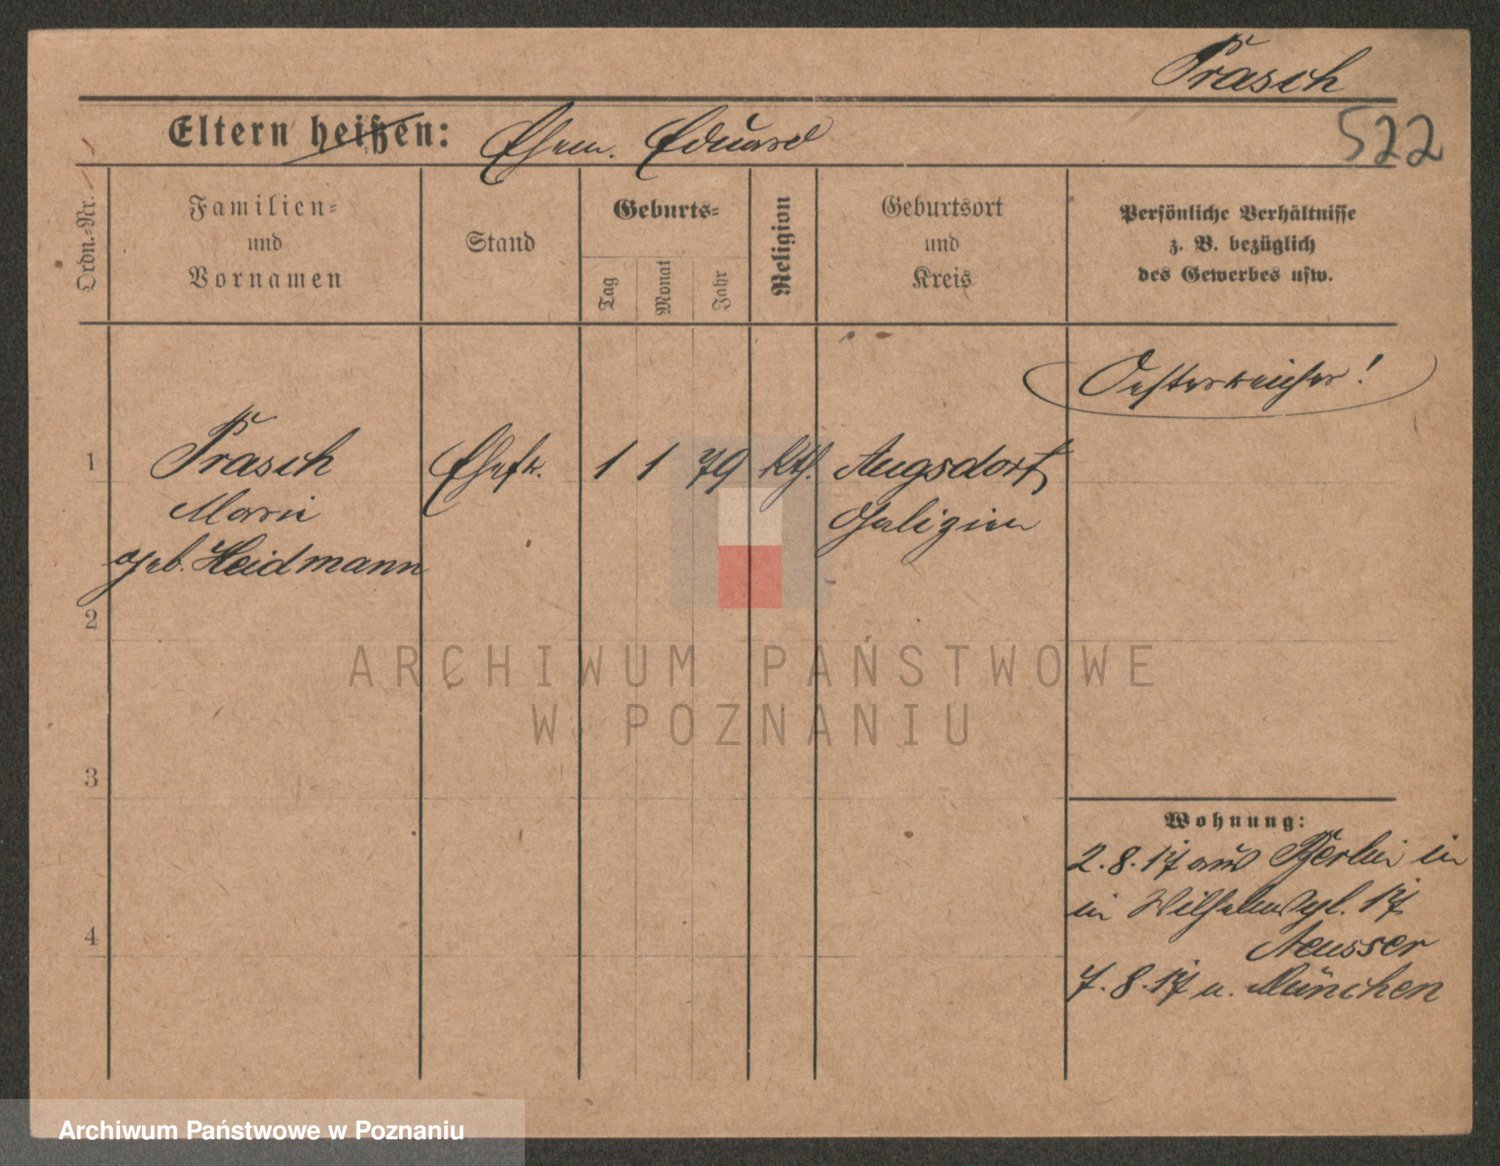 Prasch
522
Eltern heißen: Ehem. Eduard
Ordn.-Nr.
Familien-
und
Vornamen
Stand
Geburts-
Tag
Monat
Jahr
Religion
Geburtsort
und
Kreis
Persönliche Verhältnisse
z. B. bezüglich
des Gewerbes usw.
Oesterreicher!
1 Prasch Ehefr. 1 1 79 kth. Augsdorf
Marie Galizien
geb. Heidmann
2
3
4
Wohnung:
2.8.17 aus Berlin in
in Wilhelmspl. 17
Neusser
7.8.17 n. München
ARCHIWUM PAŃSTWOWE
W POZNANIU
Archiwum Państwowe w Poznaniu